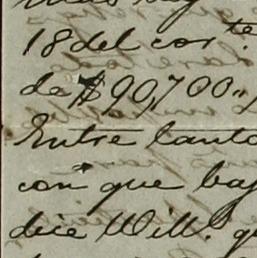 18 del corte.
de $90,700"
Entre tanto
con que
dice Will.